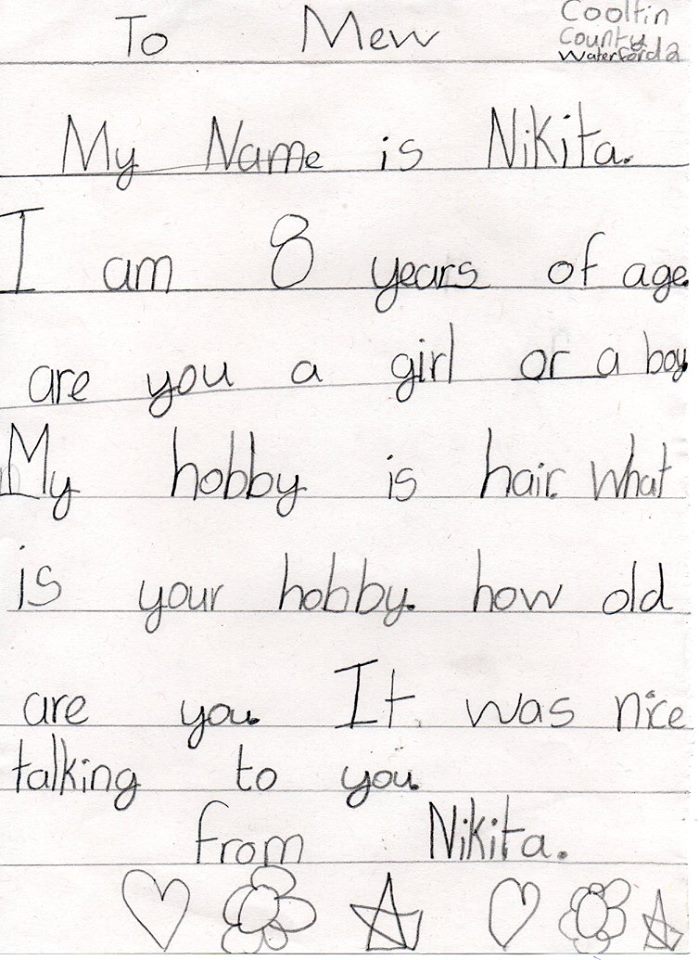 To Mew
Coolfin
County
Waterford 2
My Name is Nikita.
I am 8 years of age.
are you a girl or a boy.
My hobby is hair. What
is your hobby. how old
are you. It was nice
talking to you.
from Nikita.